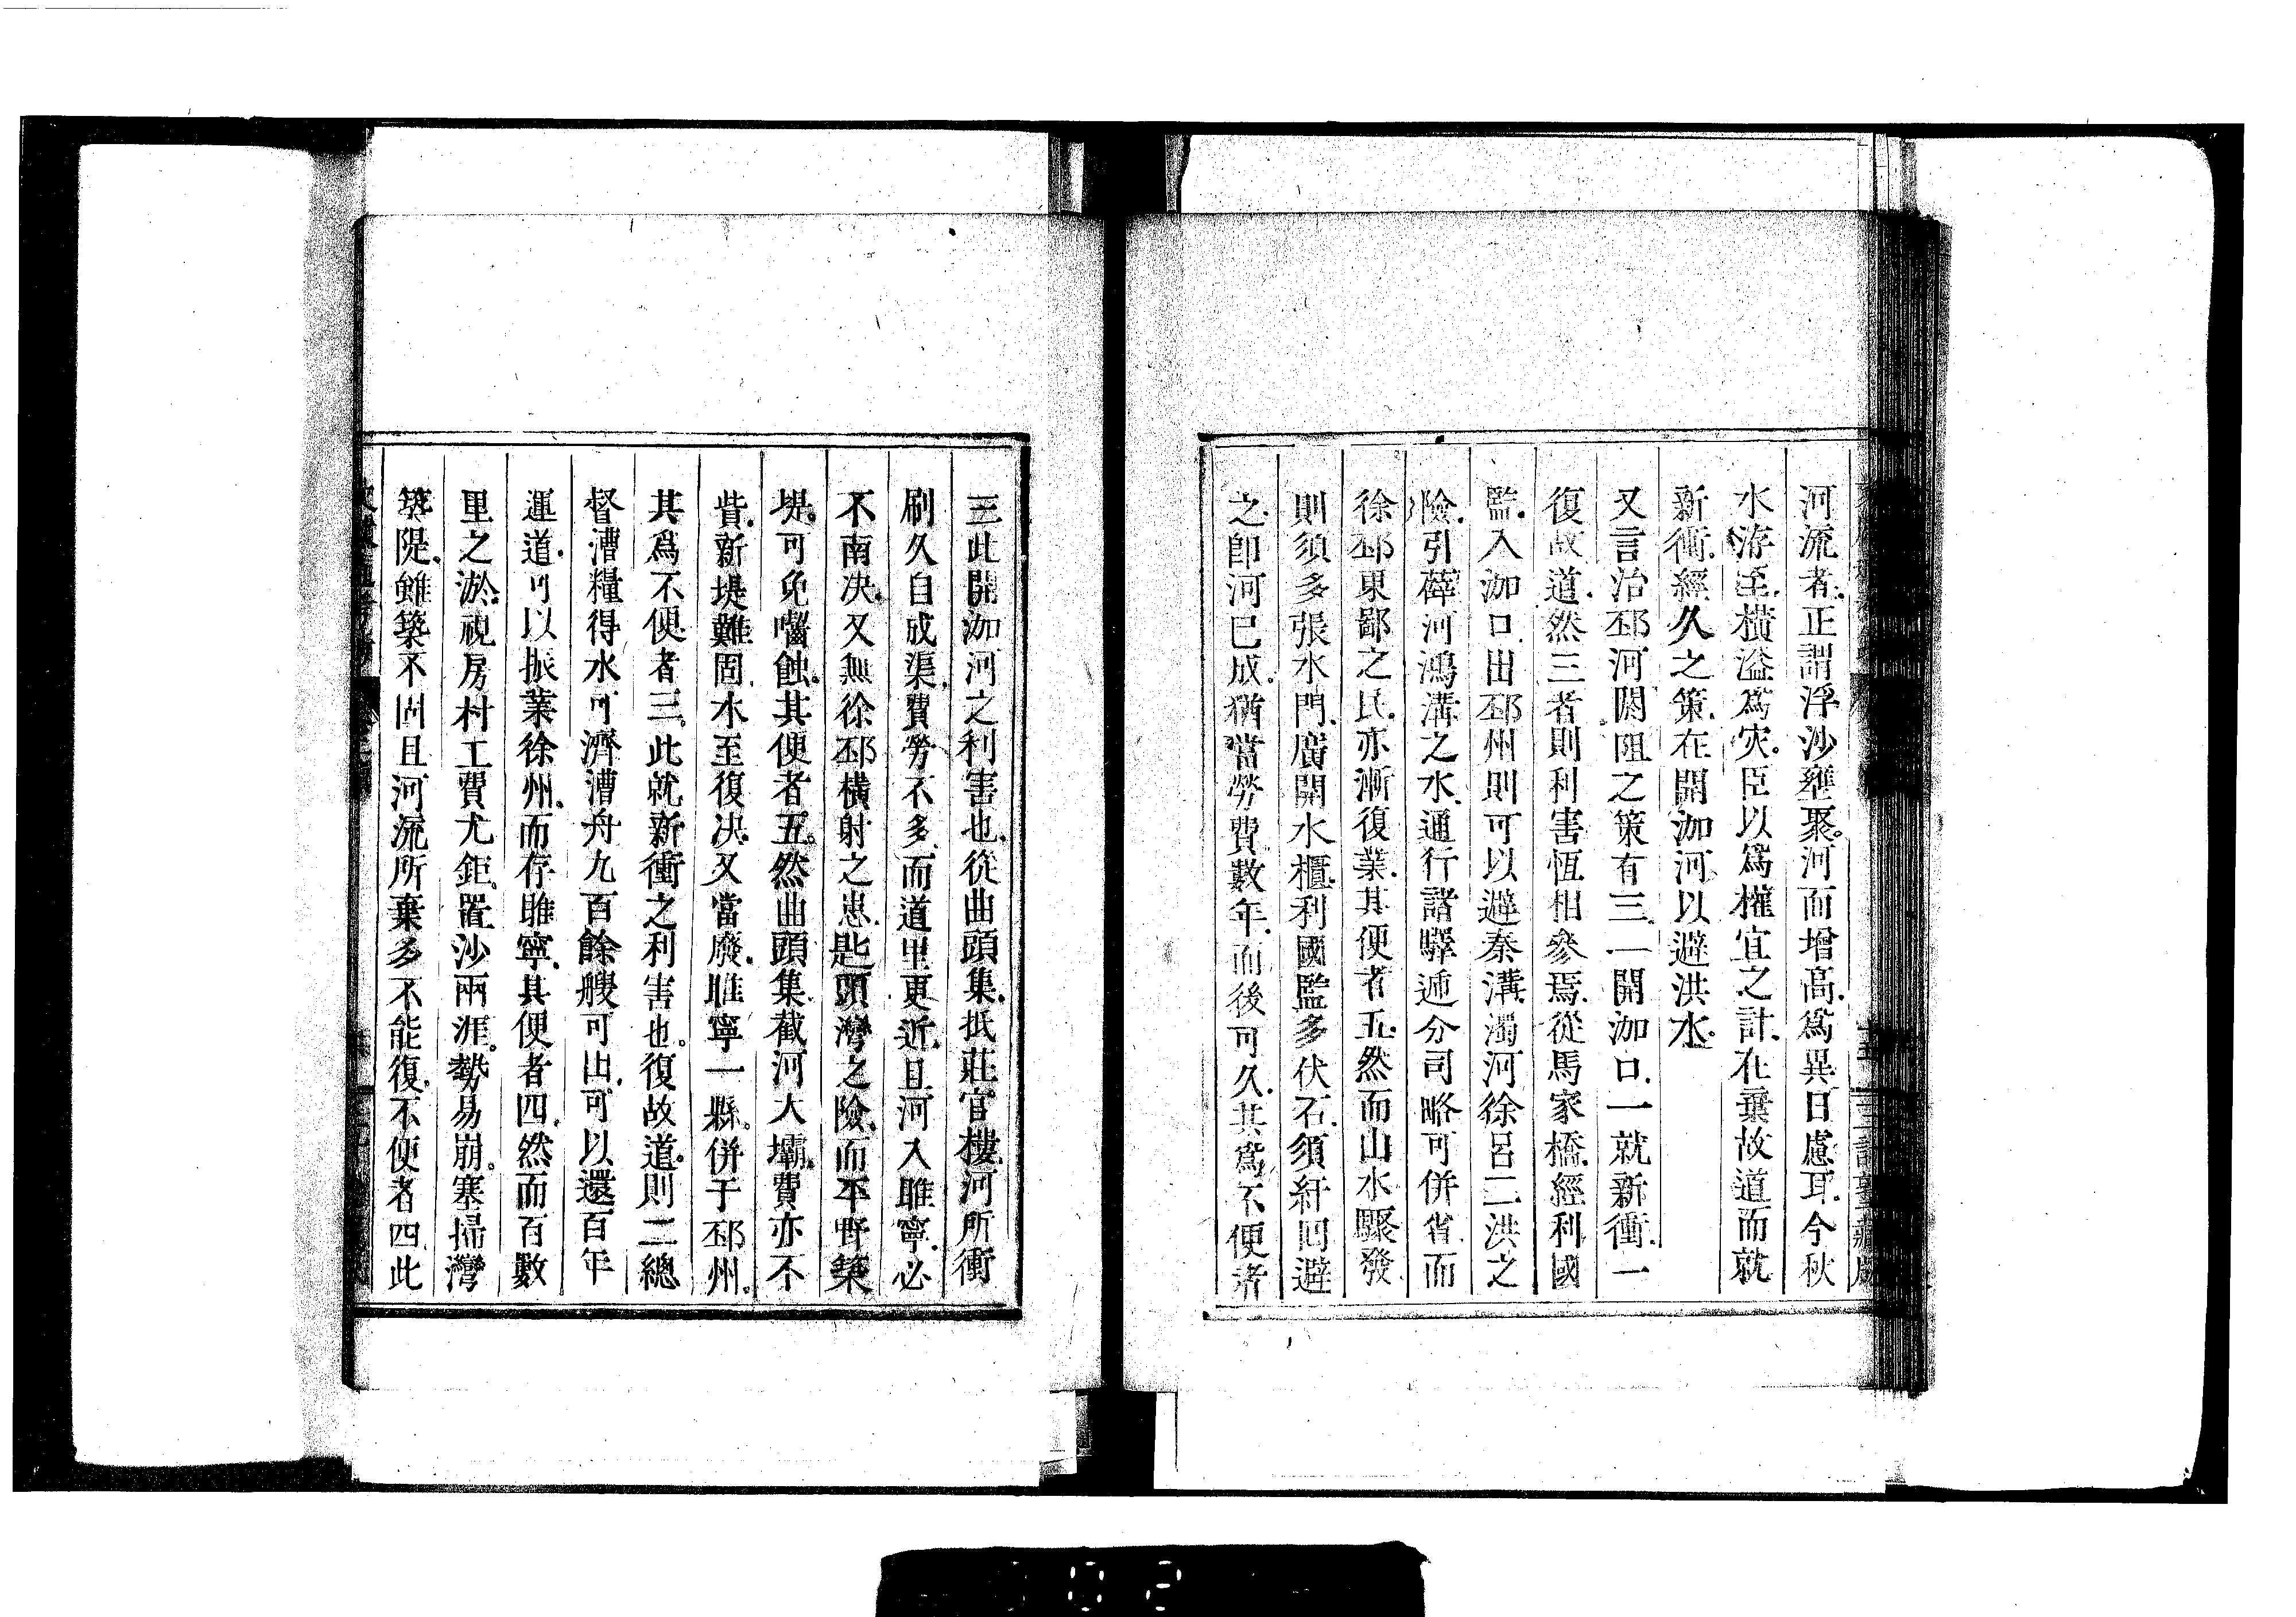 河流者正謂浮沙壅聚河而增高爲異日慮耳今秋
水洊至橫溢爲灾臣以爲權宜之計在棄故道而就
新衝經久之策在開泇河以避洪水
又言治邳河閼阻之策有三一開泇口一就新衝一
復故道然三者則利害恆相參焉從馬家橋經利國
監入泇口出邳州則可以避秦溝濁河徐呂二洪之
險引薛河鴻溝之水通行諸驛逓分司略可併省而
徐邳東鄙之民亦漸復業其便者五然而山水驟發
則須多張水門廣開水櫃利國監多伏石須紆囘避
之卽河已成猶當勞費數年而後可久其爲不便者
三此開泇河之利害也從曲頭集抵莊官樓河所衝
刷久自成渠費勞不多而道里更近且河入睢寧必
不南决又無徐邳橫射之患匙頭灣之險而平野築
堤可免囓蝕其便者五然曲頭集截河大壩費亦不
貲新堤難固水至復决又當廢睢寧一縣併于邳州
其爲不便者三此就新衝之利害也復故道則二總
督漕糧得水可濟漕舟九百餘艘可出可以還百年
運道可以振業徐州而存睢寧其便者四然而百數
里之淤視房村工費尤鉅置沙兩涯勢易崩塞掃灣
築隄雖築不固且河流所棄多不能復不便者四此